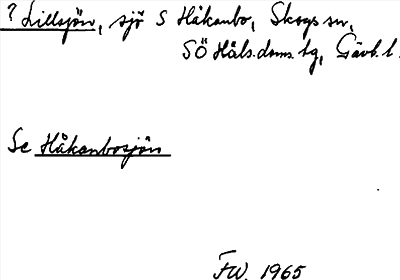 ? Lillsjön, sjö S Håkanbo, Skogs sn,
SÖ Häls. doms. tg, Gävl. l.
Se Håkanbosjön
FW. 1965